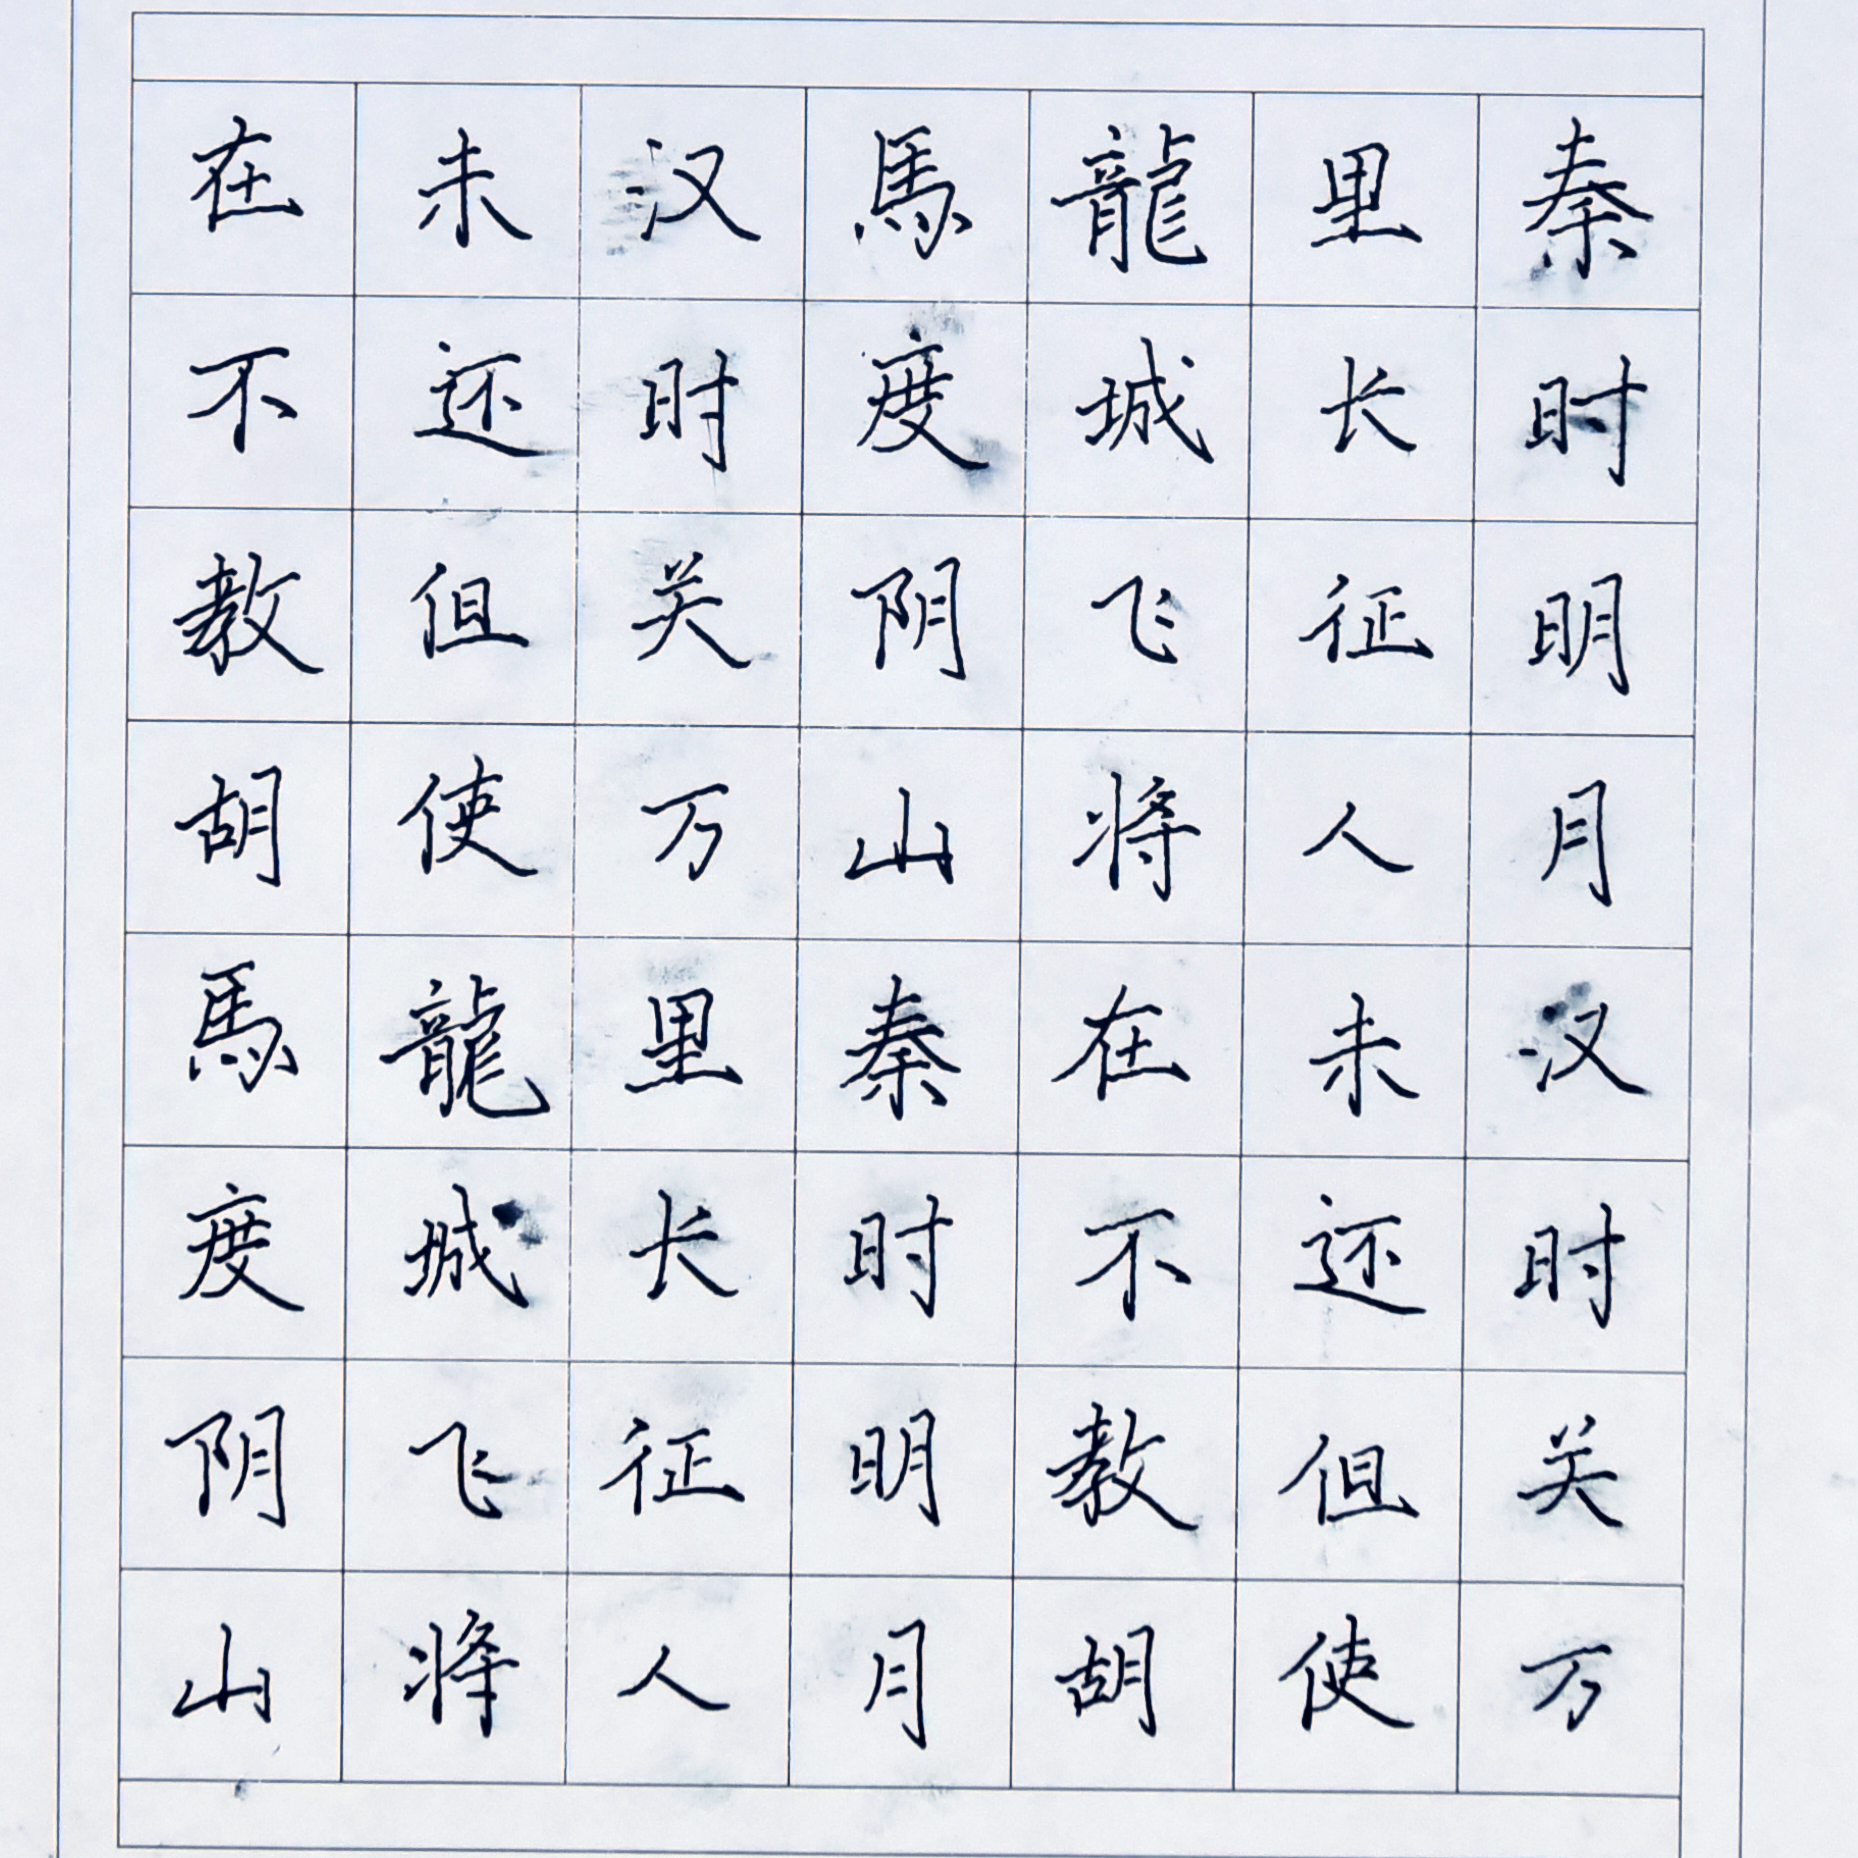 秦时明月汉时关万
里长征人未还但使
龍城飞将在不教胡
馬度阴山秦时明月
汉时关万里长征人
未还但使龍城飞将
在不教胡馬度阴山